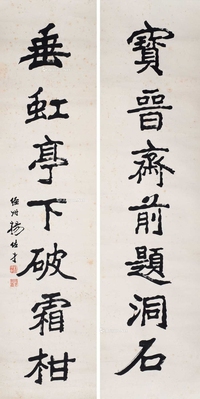 寶晉齋前題洞石
垂虹亭下破霜柑